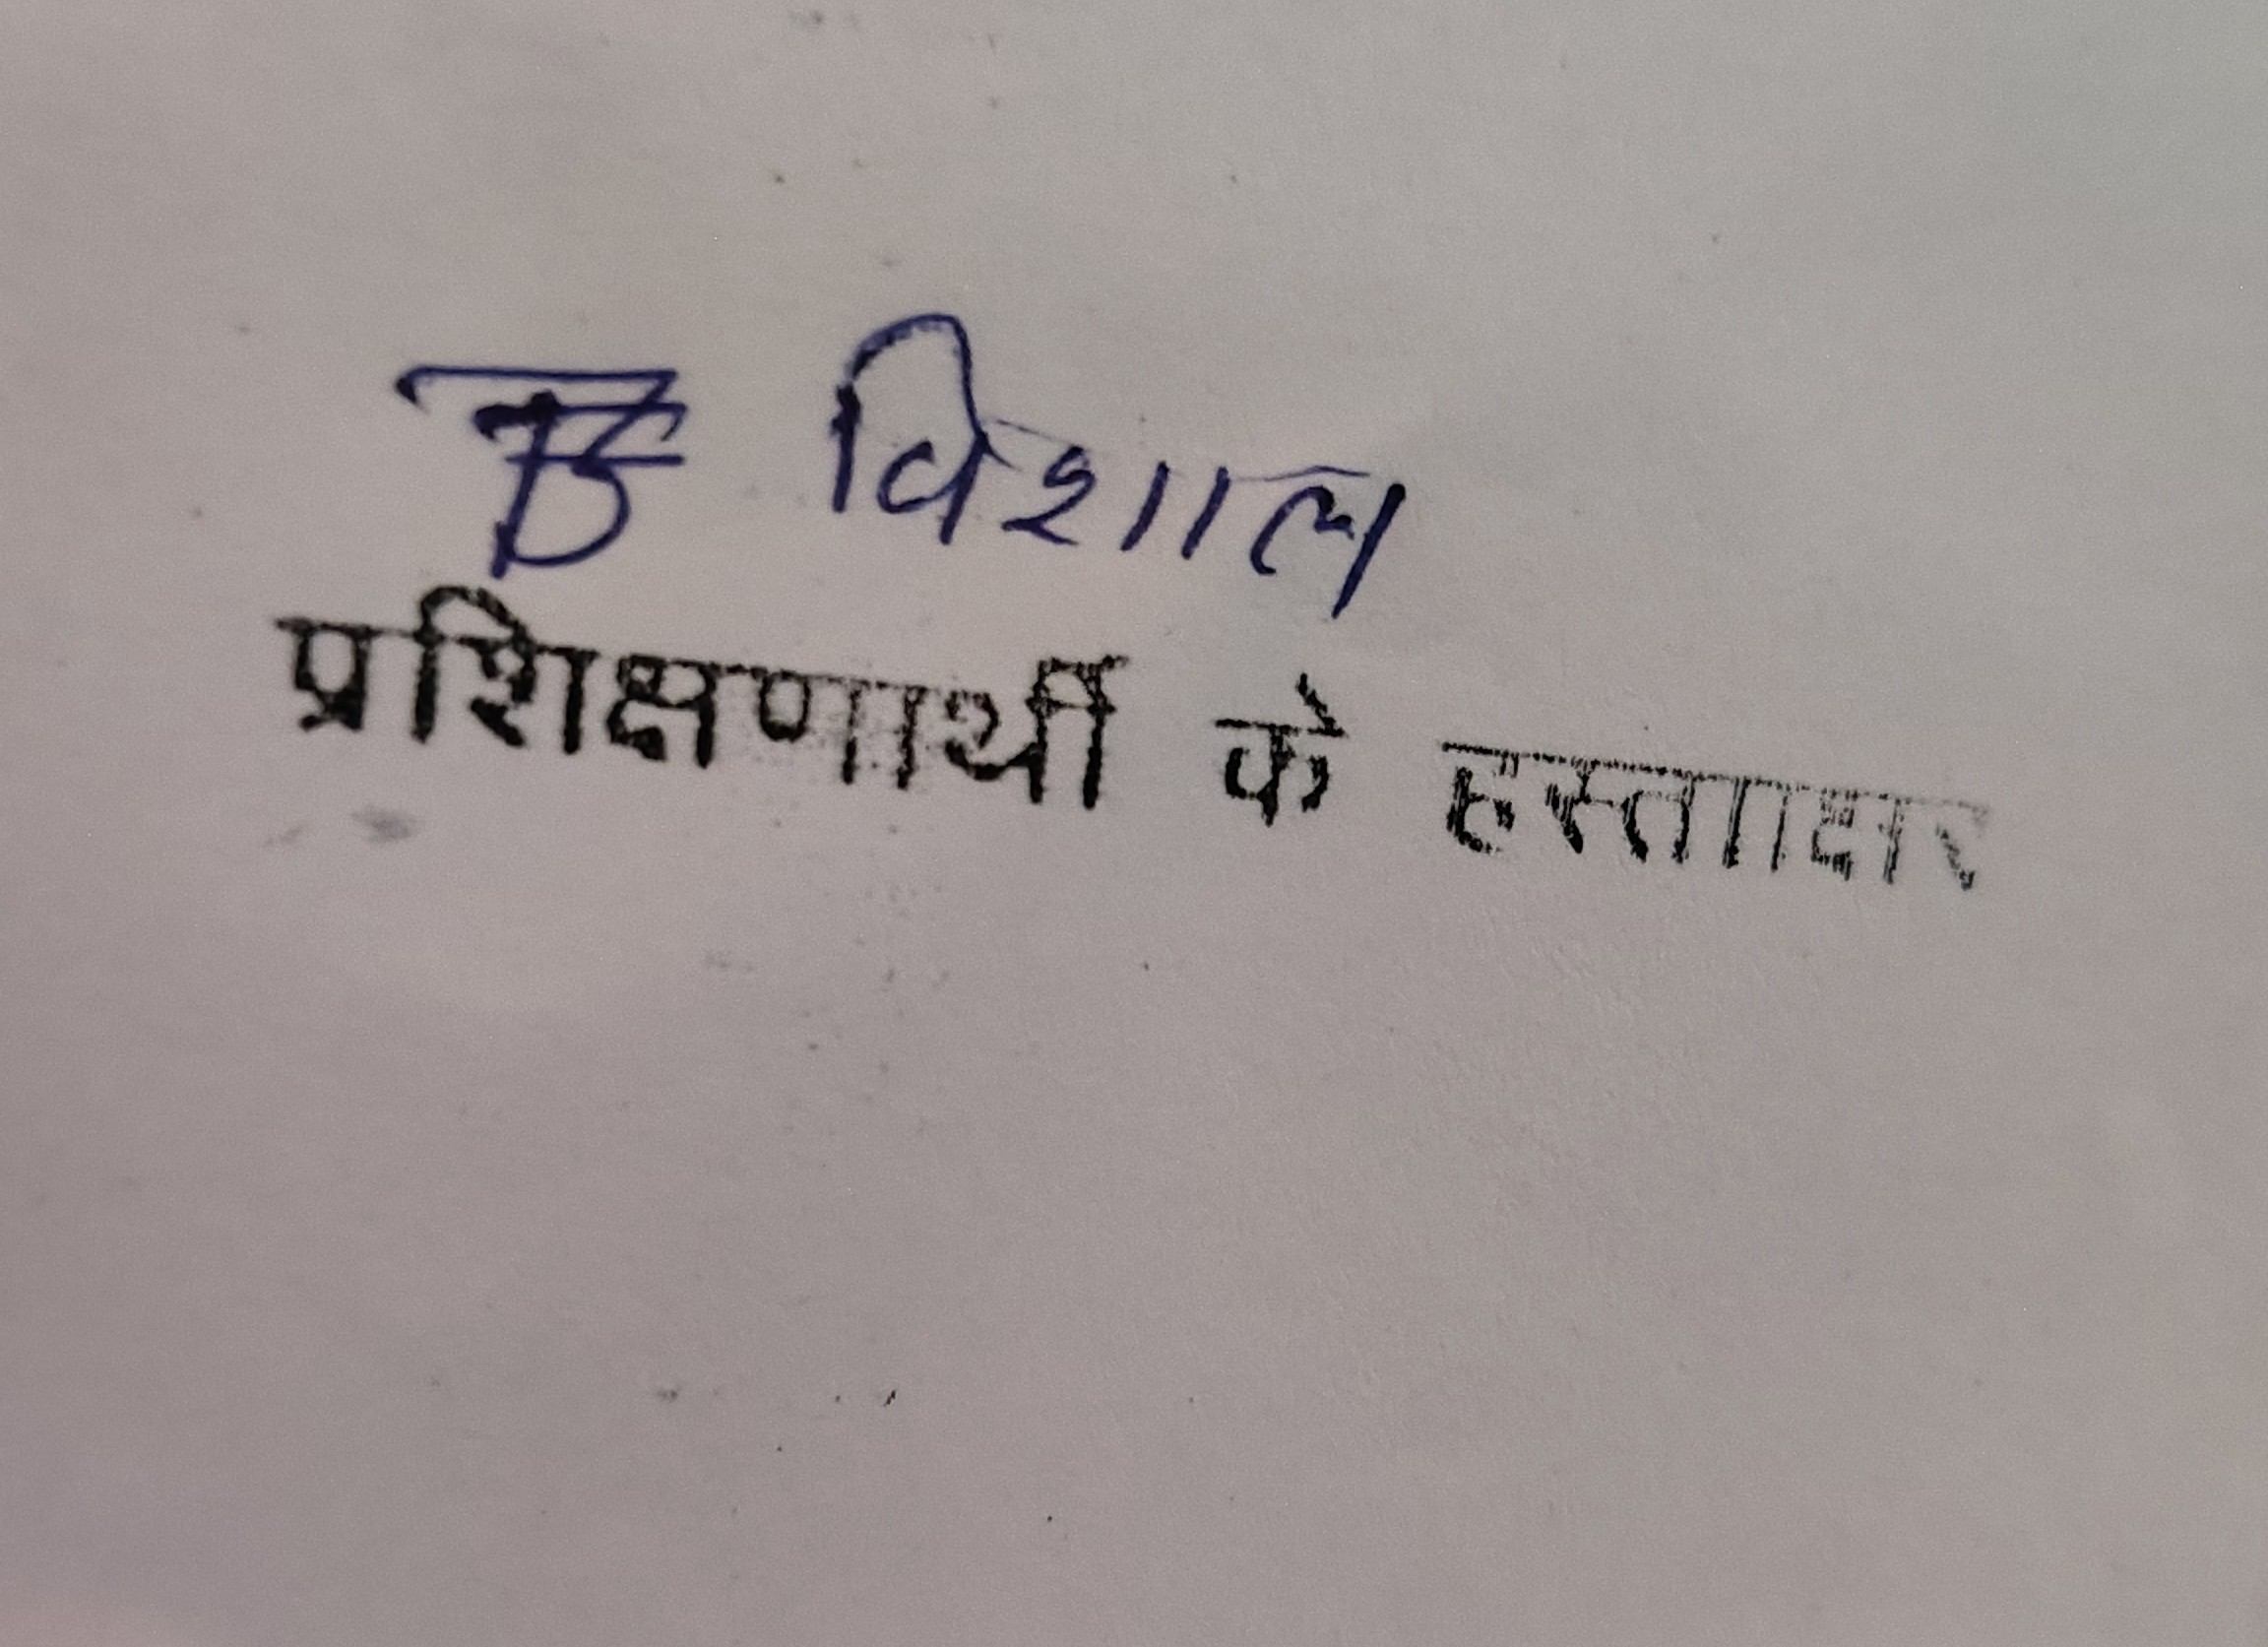 विशाल
प्रशिक्षणार्थी के हस्तााक्षर